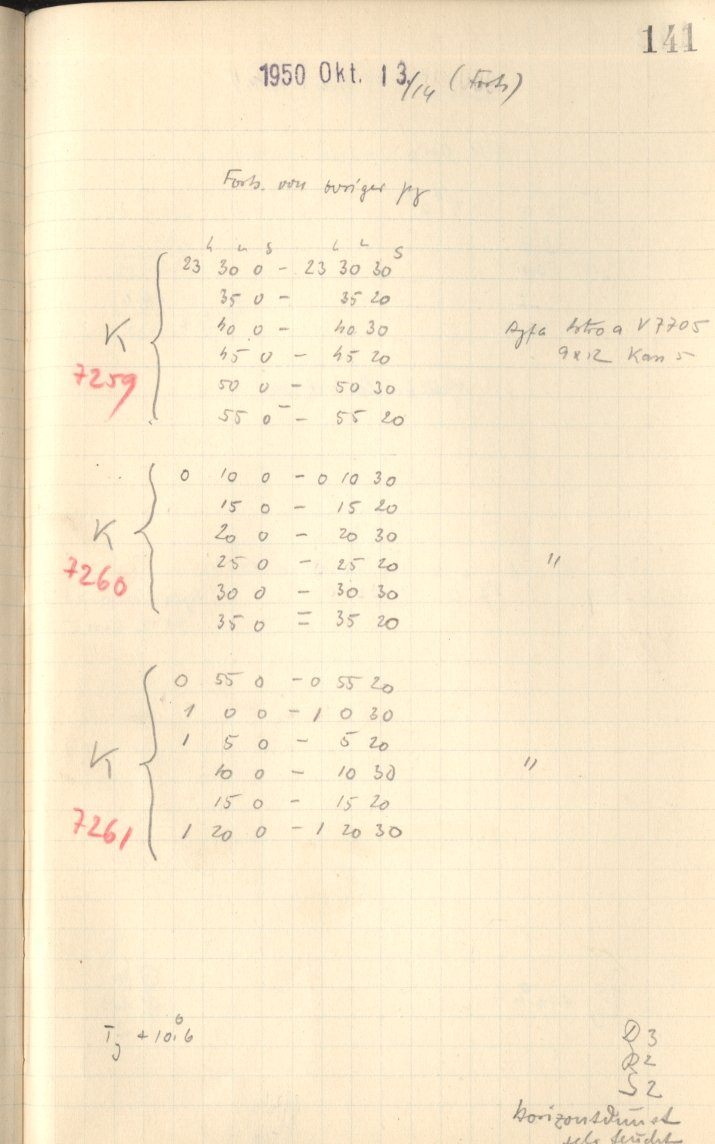 141
1950 Okt. 13./14 (Forts)
Forts. von voriger pg
h m s h m s
23 30 0 - 23 30 30
35 0 - 35 20
K 40 0 - 40 30 Agfa Astro a V7705
45 0 - 45 20 9x12 Kass 5
7259 50 0 - 50 30
55 0 - 55 20
0 10 0 - 0 10 30
15 0 - 15 20
K 20 0 - 20 30
7260 25 0 - 25 20 "
30 0 - 30 30
35 0 = 35 20
0 55 0 - 0 55 20
1 0 0 - 1 0 30
1 5 0 - 5 20
K 10 0 - 10 30 "
15 0 - 15 20
7261 1 20 0 - 1 20 30
+ 10.6
3
2
S 2
Horizontdunst
sehr feucht